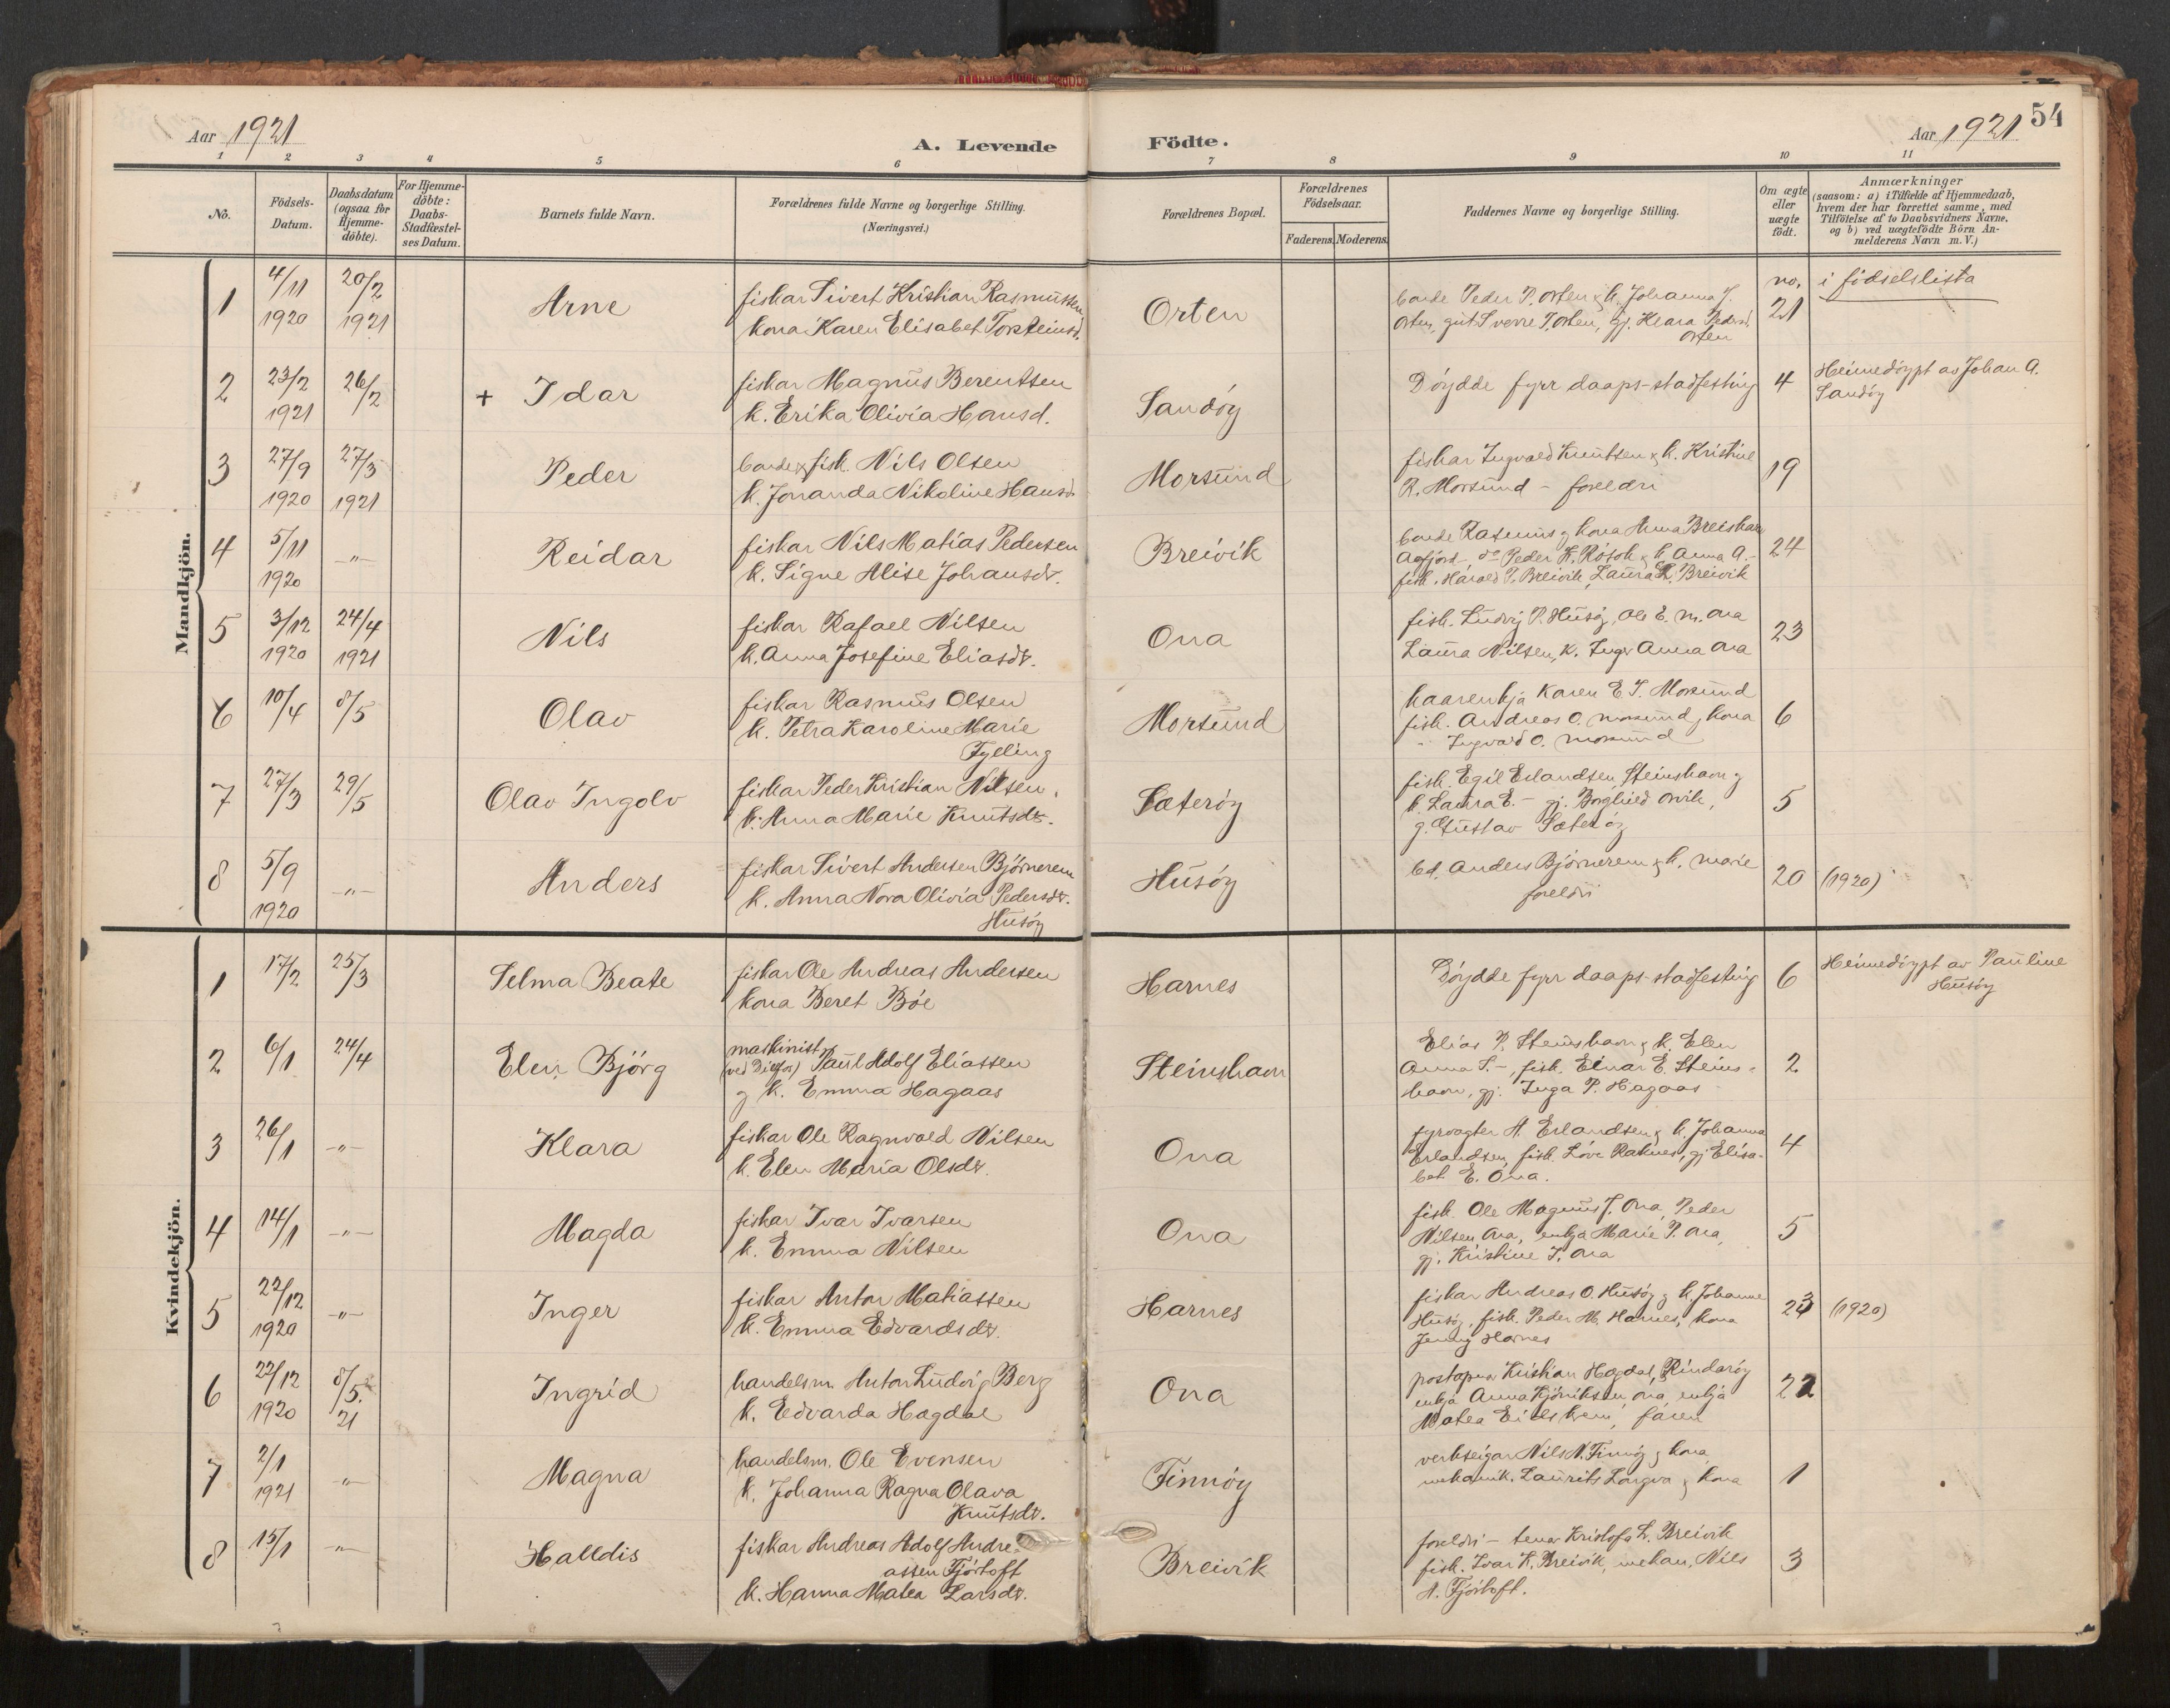 54
Aar 1921
A. Levende Födte.
Aar 1921
1 2 3 4 5 6 7 8 9 10 11
No.
Födsels-
Datum.
Daabsdatum
(ogsaa for
Hjemme-
döbte).
For Hjemme-
döbte:
Daabs-
Stadfæstel-
ses Datum.
Barnets fulde Navn.
Forældrenes fulde Navne og borgerlige Stilling.
(Næringsvei.)
Forældrenes Bopæl.
Forældrenes
Födselsaar.
Faderens. Moderens.
Faddernes Navne og borgerlige Stilling.
Om ægte
eller
uægte
födt.
Anmærkninger
(saasom: a) i Tilfælde af Hjemmedaab,
hvem der har forrettet samme, med
Tilföielse af to Daabsvidners Navne,
og b) ved uægtefödte Börn An-
melderens Navn m. V.)
Mandkjön.
1
4/11
1920
20/2
1921
Arne
fiskar Sivert Kristian Rasmussen
kona Karen Elisabet Torsteinsd.
Orten
bonde Peder P. Orten & k. Johanna J.
Orten, gut Sverre T. Orten, gj. Klara Pedersd.
Orten
no.
21
i fødselslista
2
23/2
1921
26/2
+ Idar
fiskar Magnus Berentsen
k. Erika Olivia Hansd.
Sandöy
Döydde fyrr daaps-stadfesting
4
Heimedöypt av Johan A.
Sandöy
3
27/9
1920
27/3
1921
Peder
bonde & fisk. Nils Olsen
k. Jonanda Nikoline Hansd.
Morsund
fiskar Ingvald Knutsen & k. Kristine
R. Morsund - foreldri
19
4
5/11
1920
-"-
Reidar
fiskar Nils Matias Pedersen
k. Signe Alise Johansdt.
Breivik
bonde Rasmus & kona Anna Breiskar
Aafjord - do Peder K. Rösok & k. Anna A.-
fisk. Harald P. Breivik, Laura L. Breivik
24
5
3/12
1920
24/4
1921
Nils
fiskar Rafael Nilsen
k. Anna Josefine Eliasdt.
Ona
fisk. Ludvig P. Husöy, Ole E. M. Ona
Laura Nilsen, k. Inger Anna Ona
23
6
10/4
8/5
Olav
fiskar Rasmus Olsen
k. Petra Karoline Marie
Fylling
Morsund
Karen E. T. Morsund
fisk. Andreas O. Morsund & kona
" Ingvald O. Morsund
6
7
27/3
29/5
Olav Ingolv
fiskar Peder Kristian Nilsen.
k. Anna Marie Knutsdt.
Sæteröy
fisk. Egil Erlandsen, Steinshavn &
k. Laura E. - gj. Borghild Orvik,
g. Gustav Sæteröy
5
8
5/9
1920
-"-
Anders
fiskar Sivert Andersen Björnerem
k. Anna Nora Olivia Pedersdt.
Husöy
Husöy
bd. Anders Björnerem & k. Marie
foreldri
20
(1920)
Kvindekjön.
1
17/2
25/3
Selma Beate
fiskar Ole Andreas Andersen
kona Beret Böe
Harnes
Döydde fyrr daaps-stadfesting
6
Heimedöypt av Pauline
Husöy
2
6/1
24/4
Elen Björg
maskinist
Paul Adolf Eliassen
& k. Emma Hagaas
Steinshavn
Elias P. Steinshavn & k. Elen
Anna S. -, fisk. Einar E. Steins-
havn, gj. Inga P. Hagaas
2
3
26/1
-"-
Klara
fiskar Ole Ragnvald Nilsen
k. Elen Maria Olsdt.
Ona
fyrvagter A. Erlandsen & k. Johanna
Erlandsen, fisk. Löve Raknes, gj Elisa-
bet E. Ona.
4
4
14/1
-"-
Magda
fiskar Ivar Ivarsen
k. Emma Nilsen
Ona
fisk Ole Magnus J. Ona, Peder
Nilsen Ona, enkja Marie P. Ona,
gj. Kristine I. Ona
5
5
22/12
1920
-"-
Inger
fiskar Anton Matiassen
k. Emma Edvardsdt.
Harnes
fiskar Andreas O. Husöy & k. Johanne
Husöy, fisk. Peder M. Harnes, kona
Jenny Harnes
23
(1920)
6
22/12
1920
8/5.
21
Ingrid
handelsm. Anton Ludvig Berg
k. Edvarda Hagdal
Ona
postopnar Kristian Hagdal, Rindaröy
enkja Anna Ona, enkja
Matea faren
22
7
2/1
1921
-"-
Magna
handelsm. Ole Evensen
k. Johanna Ragna Olava
Knutsdt.
Finnöy
verkseigar Nils N. Finnöy & kona
mekanik. Laurits Longva & kona
1
8
15/1
-"-
Halldis
fiskar Andreas Adolf Andre-
assen Fjörtoft
k. Hanna Matea Larsdt.
Breivik
foreldri - Kristofa L. Breivik
fisk. Ivar K. Breivik, mekan. Nils
A. Fjörtoft.
3